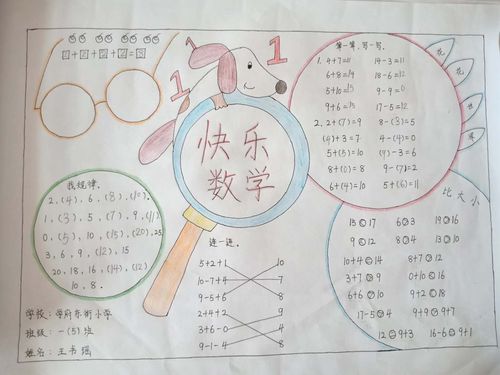 □+□+□+□=□
1
1
快乐
数学
算一算,写一写。
1. 4+7=11 14-3=11
6+8=14 18-6=12
5+10=15 9-9=0
9+6=15 17-5=12
2. 2+(7)=9 8-(3)=5
(4)+3=7 4-(4)=0
5+(5)=10 (4)-3=6
8+(0)=8 9-(7)=2
6+(4)=10 5+(6)=11
找规律。
2,(4),6,(8),(10).
1,(3),5,(7),9,(11)
0,(5),10,(15),(20),25
3,6,9,(12),15
20,18,16,(14),(12)
10,8.
连一连。
5+2+1 10
10-7+4 7
9-5+6 8
2+4+2 9
3+6-0 4
9-1-4 8
比大小
6 3
9 12 8 4 13 10
10+4 14 8+7 12
3+7 9 0+10 16
6+6 10 9+2 18
17-5 4 9+9 9+7
12 9+3 16-6 9+1
学校:学府东街小学
班级:一(5)班
姓名:王书瑶